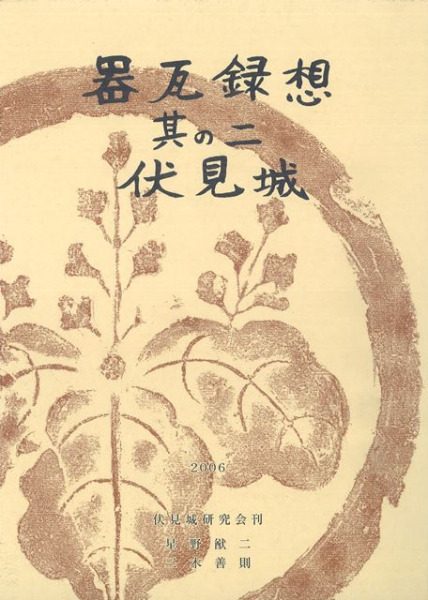 器瓦録想
其の二
伏見城
2006
伏見城研究会刊
星野猷二
三木善則